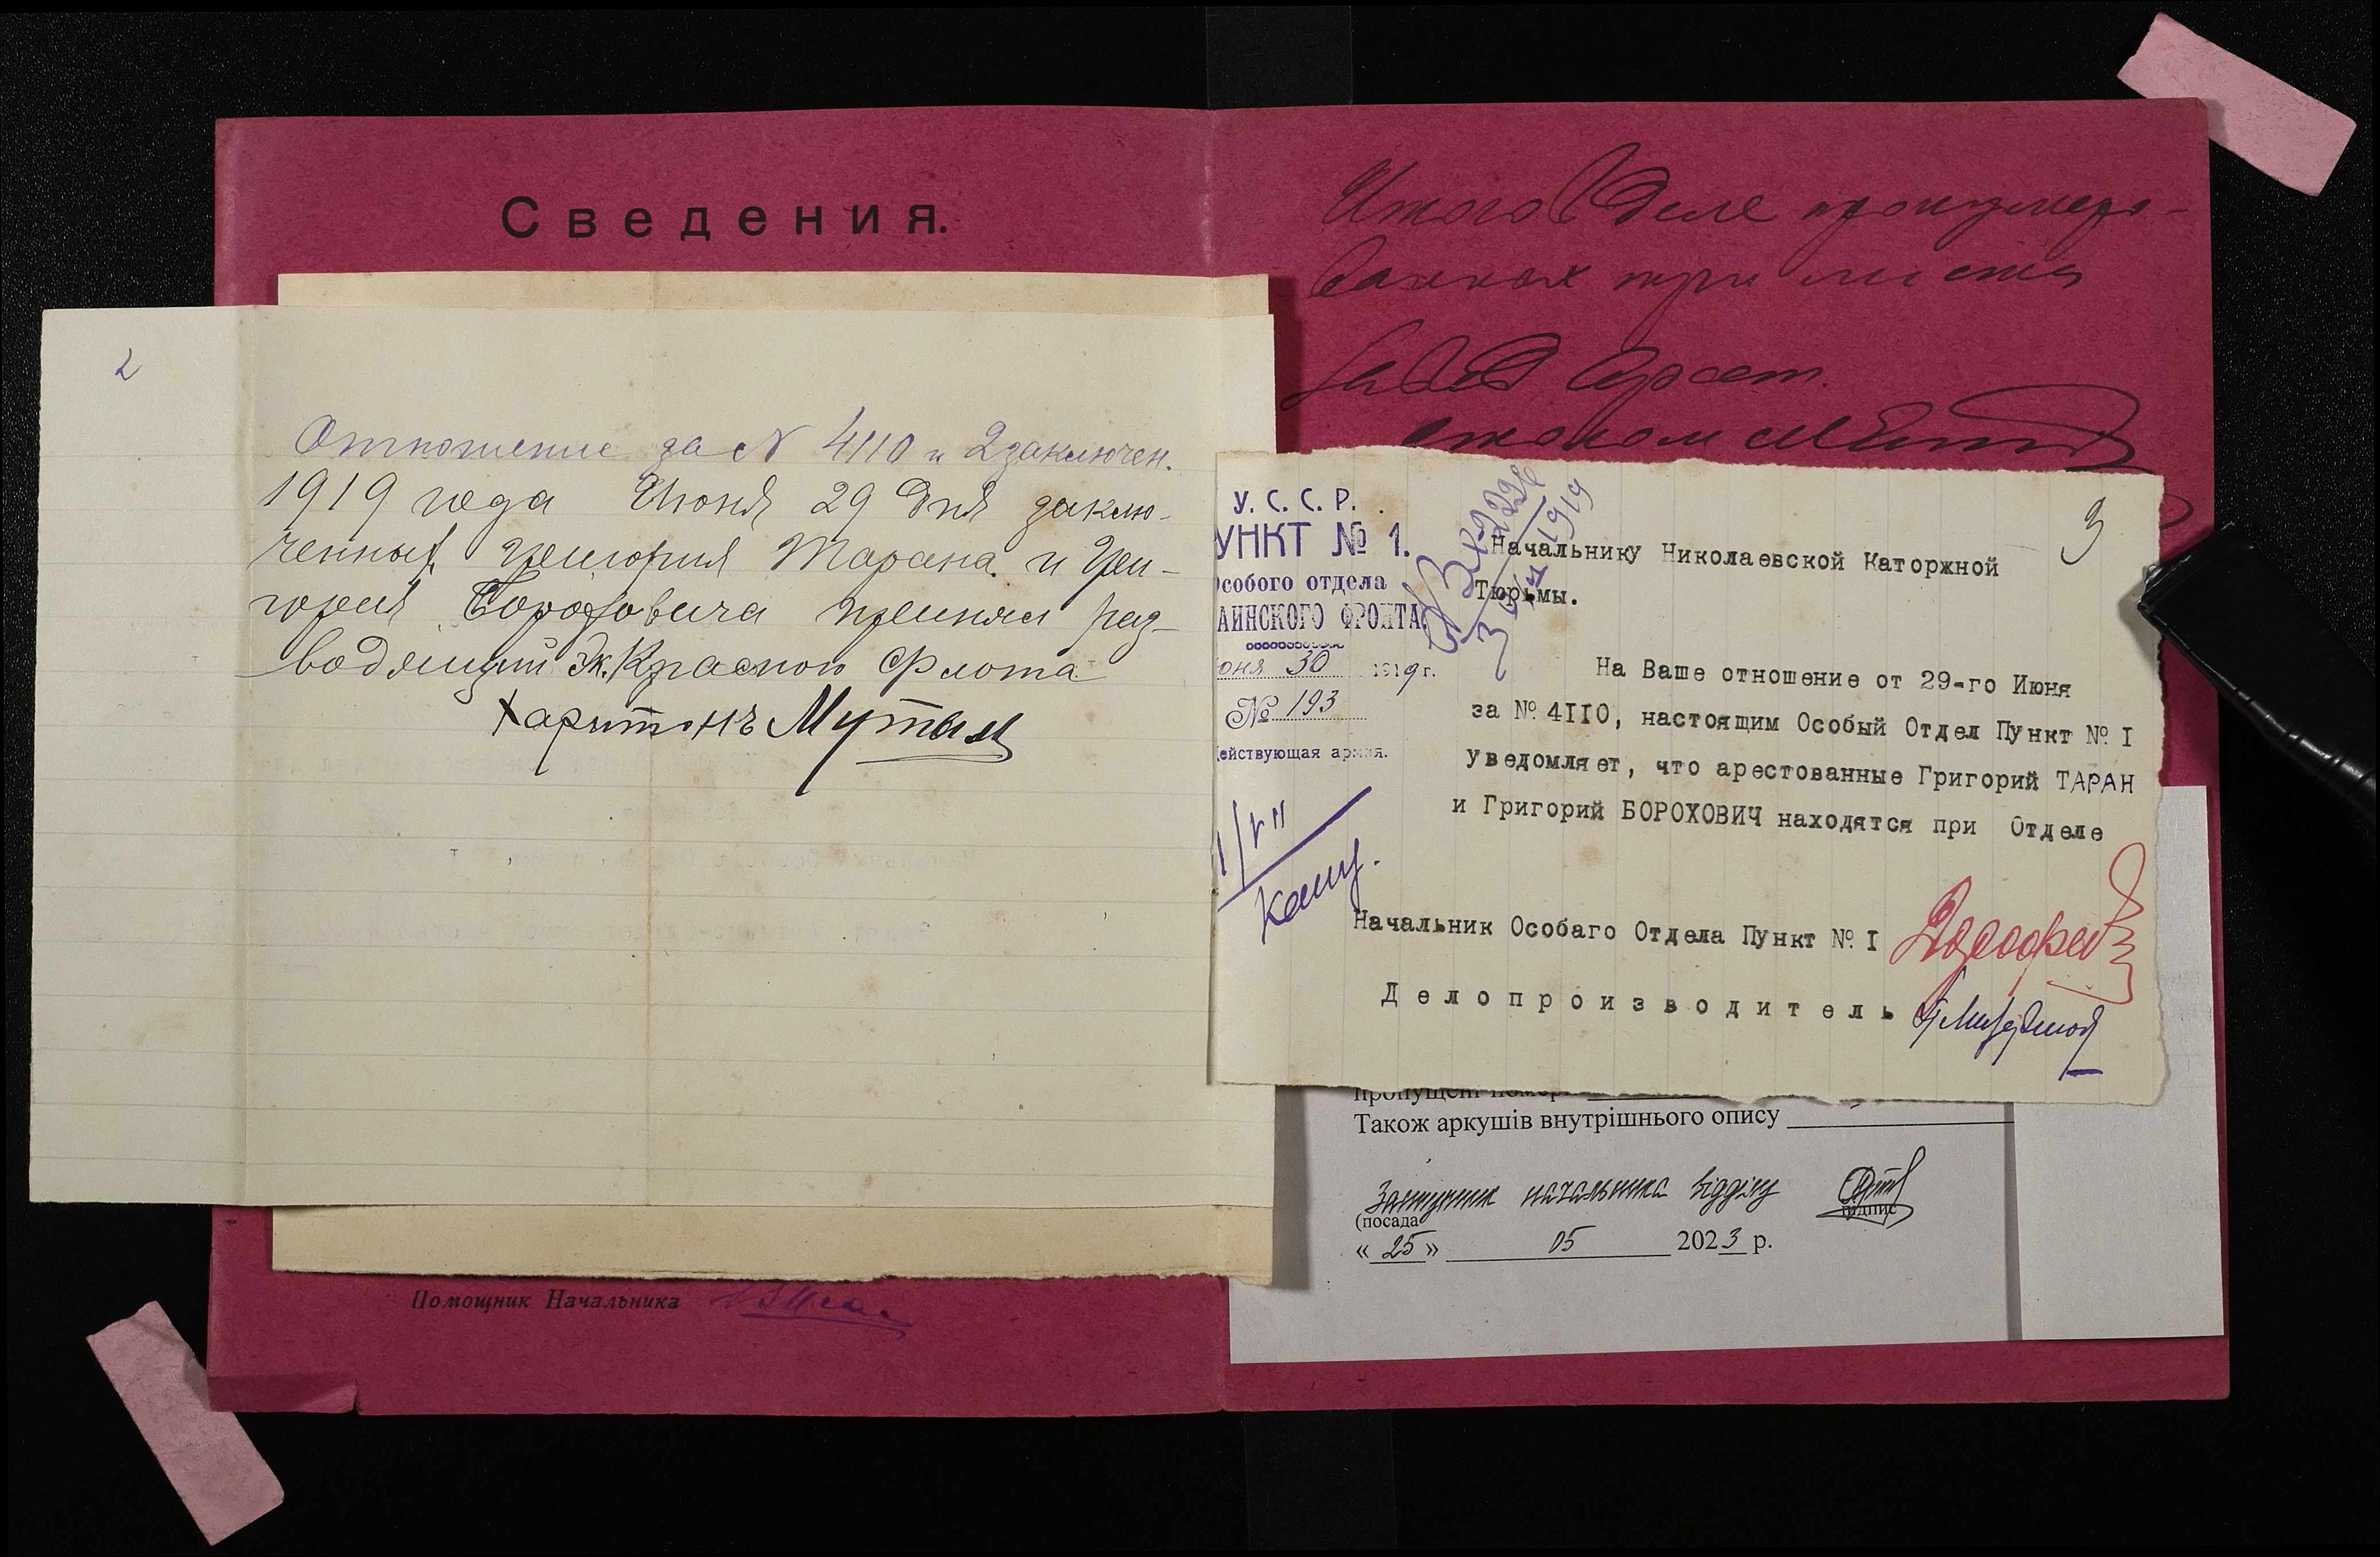 Сведения.
2
Отношение за № 4110 и 2 заключен.
1919 года Июня 29 дня заклю-
ченных Григория Тарана и Гри-
гория Бороховича принял раз-
водящий Эк. Красного Флота
Харитонъ Мутыл
Помощник Начальника
Итого в деле пронумеро-
ванных три листа
У. С. С. Р.
УНКТ № 1.
Особого отдела
АИНСКОГО ФРОНТА
юня 30 1919 г.
№ 193
Действующая армия.
1/VII
Канц.
Вх 2228
1919
3
Начальнику Николаевской Каторжной
Тюрьмы.
На Ваше отношение от 29-го Июня
за № 4IIO, настоящим Особый Отдел Пункт № I
уведомляет, что арестованные Григорий ТАРАН
и Григорий БОРОХОВИЧ находятся при Отделе
Начальник Особаго Отдела Пункт № I
Делопроизводитель
пропущені номери
Також аркушів внутрішнього опису
Заступник начальника відділу
(посада підпис
« 25 » 05 2023 р.